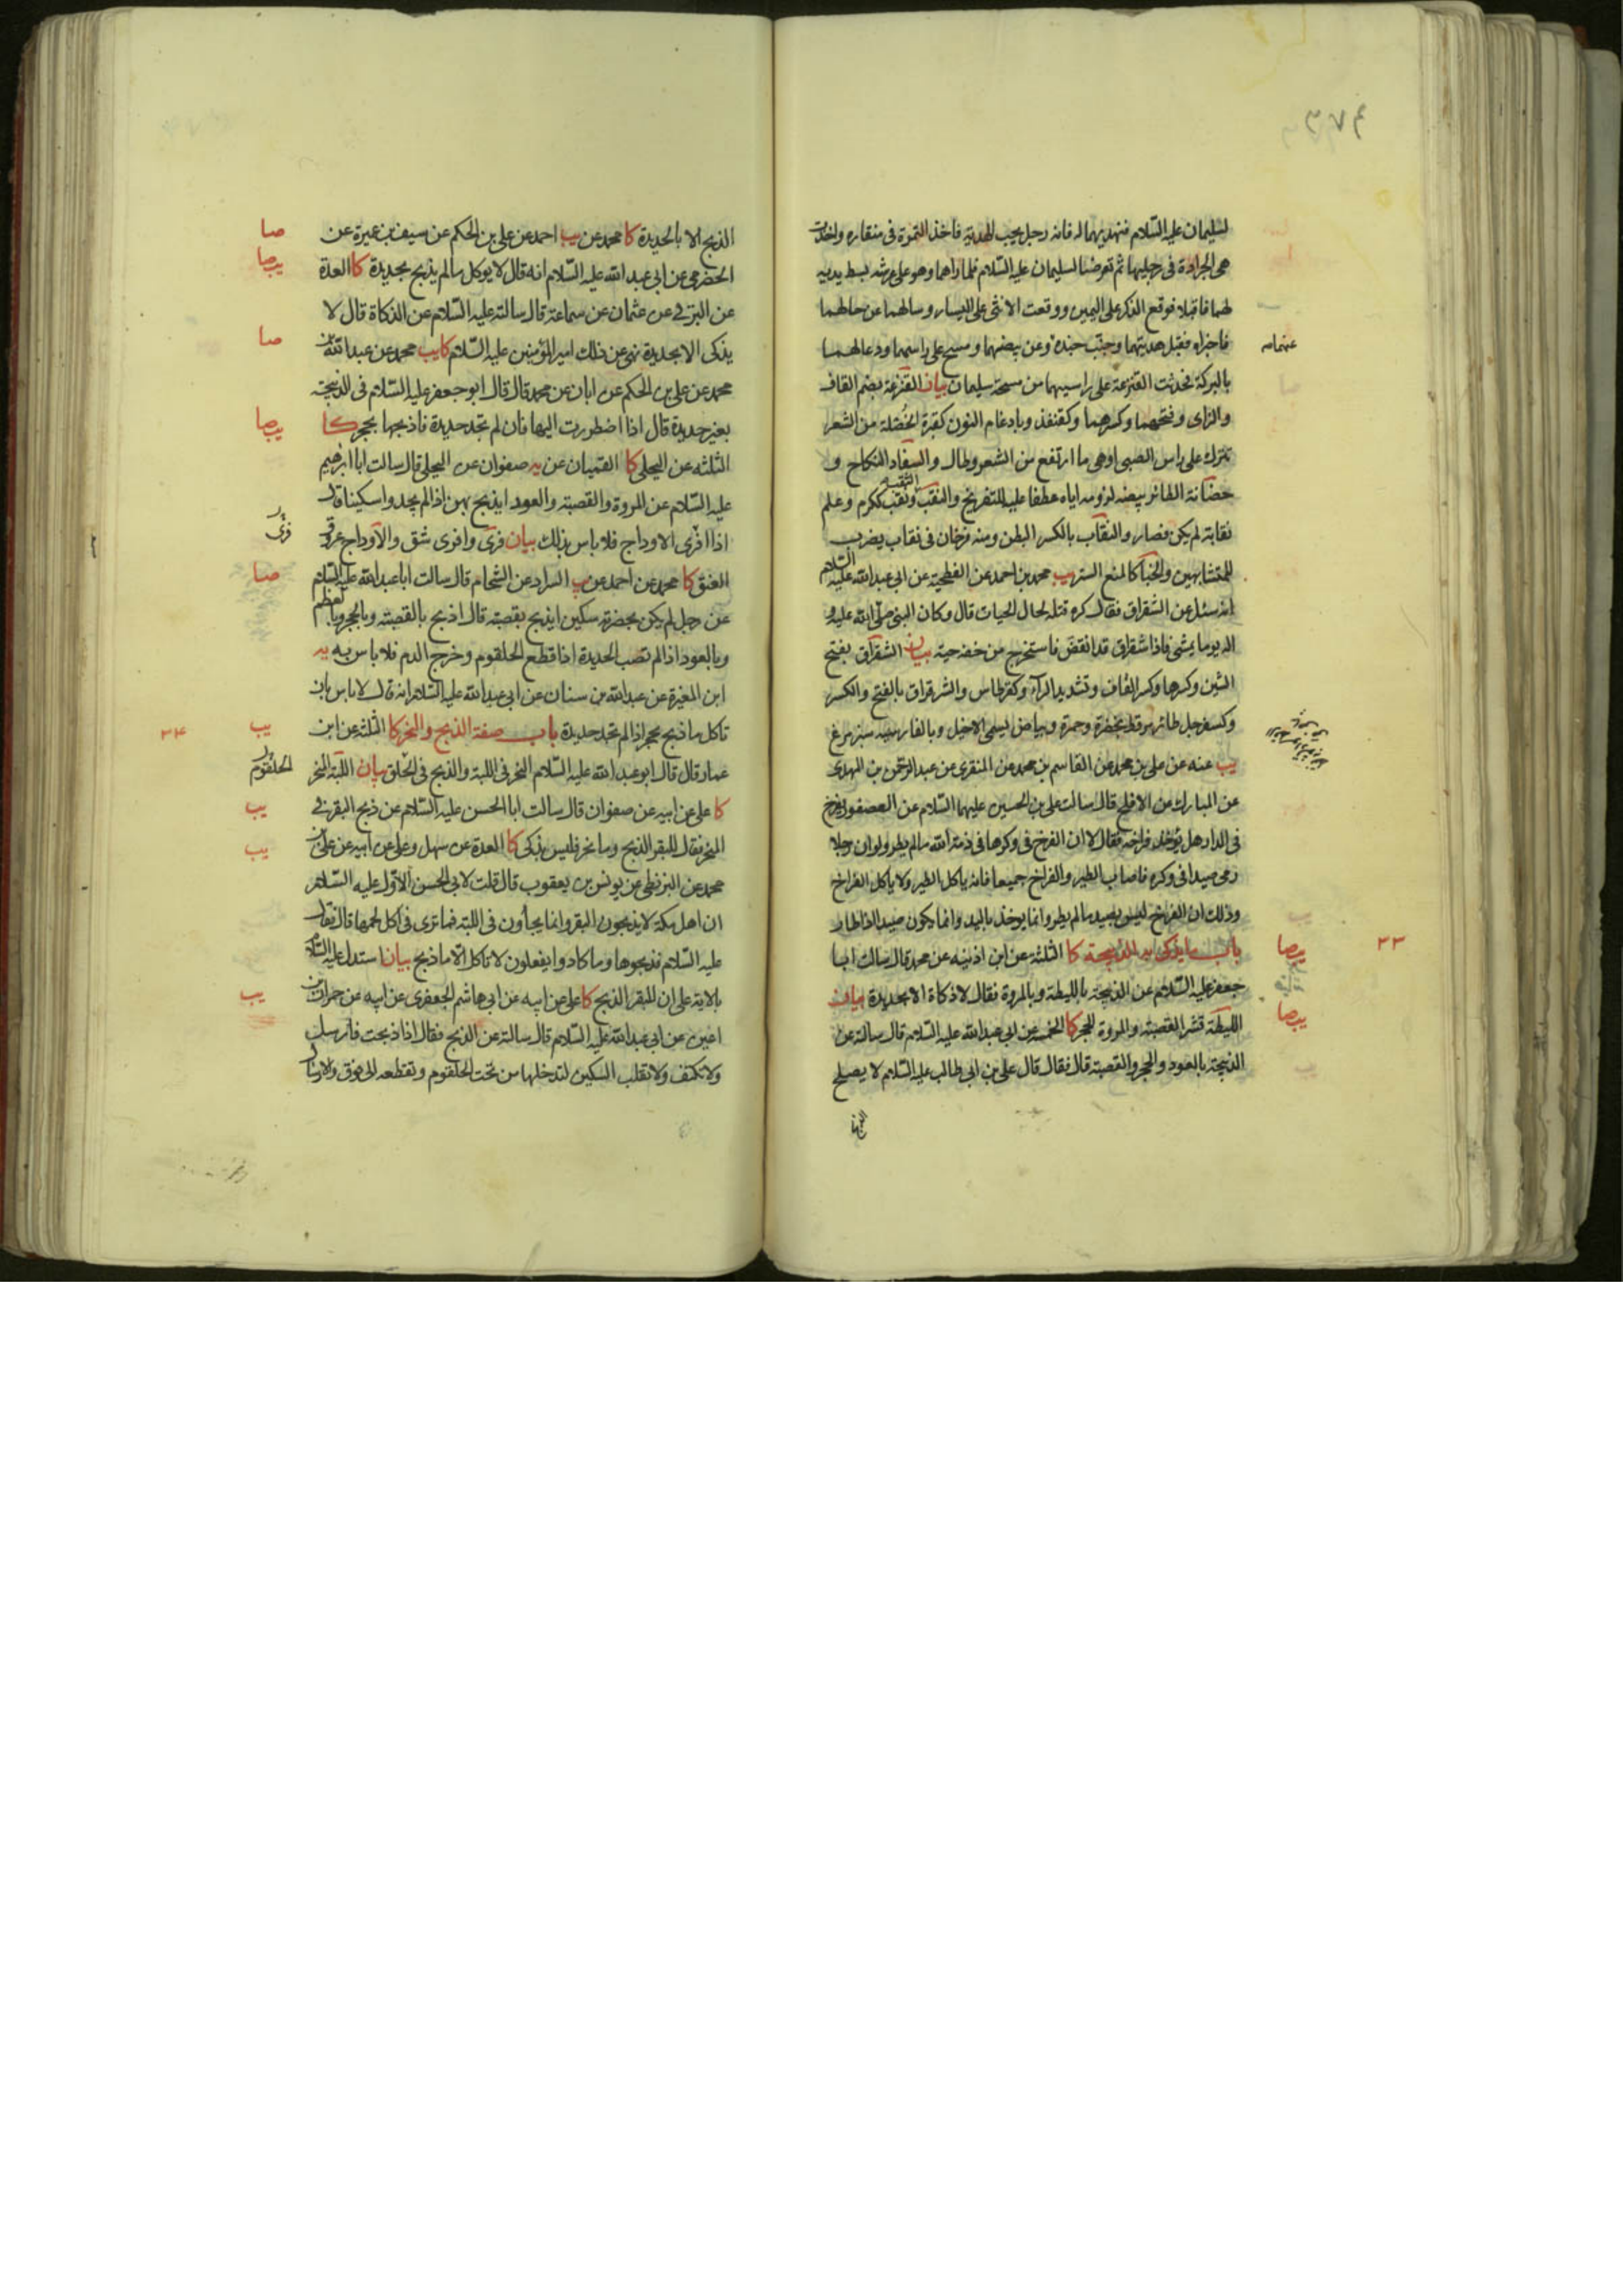 ٣٧٤
لسليمان عليه السّلام فنهديهما له فانه رجل يحب الهدية فاخذ التمرة فى منقاره واخذت
هى الجرادة فى رجليها ثم تعرضا لسليمان عليه السّلام فلما راهما وهو على عرشه بسط يديه
لهما فاقبلا فوقع الذكر على اليمين ووقعت الانثى على اليسار وسالهما عن حالهما
فاخبراه فقبل هديتهما وجنّب جنده وعن بيضهما ومسح على راسهما ودعا لهما
عنهما
بالبركة فحدثت القنزعة على راسيهما من مسحة سليمان بيان القنزعة بضم القاف
والزاى وفتحهما وكسرهما وكقنفذ وبادغام النون كقبرة الخصلة من الشعر
تترك على راس الصبى اوهى ما ارتفع من الشعر وطال والسفاد النكاح و
حضانة الطائر بيضه لزومه اياه عطفا عليه للتفريخ والنقب ونقب ككرم وعلم
نقابة لم يكن فصار والنقاب بالكسر البطن ومنه فرخان فى نقاب يضرب
للمتشابهين والخبأ كالمنع الستر يب محمد بن احمد عن الفطحية عن ابى عبد الله عليه السّلام
انه سئل عن الشقراق فقال كره قتله لحال الحيات قال وكان النبى صلّى الله عليه و
اله يوما يمشى فاذا شقراق قد انقض فاستخرج من خفه حية بيان الشقراق بفتح
الشين وكسرها وكسر القاف وتشديد الراء وكقرطاس والشرقراق بالفتح والكسر
وكسفرجل طائر مرقط بخضرة وحمرة وبياض ليسمى الاخيل وبالفارسية سبز مرغ
يب عنه عن على بن محمد عن القاسم بن محمد عن المنقرى عن عبد الرحمن بن المهدى
عن المبارك عن الافلح قال سالت على بن الحسين عليهما السّلام عن العصفور يفرخ
فى الدار هل يؤخذ فراخه فقال لا ان الفرخ فى وكرها فى ذمة الله ما لم يطر ولو ان رجلا
رمى صيدا فى وكره فاصاب الطير والفراخ جميعا فانه ياكل الطير ولا ياكل الفراخ
وذلك ان الفرخ ليس بصيد ما لم يطر وانما يوخذ باليد وانما يكون صيدا اذا طار
باب ما يذكى به الذبيحة كا الثلثة عن ابن اذينه عن محمد قال سالت ابا
يب صا
٢٣
جعفر عليه السّلام عن الذبيحة بالليطة وبالمروة فقال لا ذكاة الا بحديدة بيان
الليطة قشر القصبة والمروة الحجر كا الخمسة عن ابى عبد الله عليه السّلام قال سالته عن
يب صا
الذبيحة بالعود والحجر والقصبة قال فقال قال على بن ابى طالب عليه السّلام لا يصلح
الذبح
الذبح الا بالحديدة كا محمد عن يب احمد عن على بن الحكم عن سيف بن عميرة عن
صا
الحضرمى عن ابى عبد الله عليه السّلام انه قال لا يوكل ما لم يذبح بحديدة كا العدة
يب صا
عن البرقى عن عثمان عن سماعة قال سالته عليه السّلام عن الذكاة قال لا
يذكى الا بحديدة نهى عن ذلك امير المؤمنين عليه السّلام كا يب محمد عن عبد الله بن
صا
محمد عن على بن الحكم عن ابان عن محمد قال قال ابو جعفر عليه السّلام فى الذبيحة
بغير حديدة قال اذا اضطررت اليها فان لم تجد حديدة فاذبحها بحجر كا
يب صا
الثلثة عن البجلى كا القميان عن يه صفوان عن البجلى قال سالت ابا ابرهيم
عليه السّلام عن المروة والقصبة والعود ايذبح بهن اذا لم يجدوا سكينا قال
اذا افرى الاوداج فلا باس بذلك بيان فرى وافرى شق والاوداج عروق
فرى
العنق كا محمد عن احمد عن يب السراد عن الشحام قال سالت ابا عبد الله عليه السّلام
صا
عن رجل لم يكن بحضرته سكين ايذبح بقصبة قال اذبح بالقصبة وبالحجر وبالعظم
وبالعود اذا لم تصب الحديدة اذا قطع الحلقوم وخرج الدم فلا باس به يه
ابن المغيرة عن عبد الله بن سنان عن ابى عبد الله عليه السّلام انه قال لا باس بان
تاكل ما ذبح بحجر اذا لم تجد حديدة باب صفة الذبح والنحر كا الثلثة عن ابن
يب
٢٤
عمار قال قال ابو عبد الله عليه السّلام النحر فى اللبة والذبح فى الحلق بيان اللبة المنحر
الحلقوم
كا على عن ابيه عن صفوان قال سالت ابا الحسن عليه السّلام عن ذبح البقر فى
يب
المنحر فقال للبقر الذبح وما نحر فليس بذكى كا العدة عن سهل وعلى عن ابيه عن على بن
يب
محمد عن البزنطى عن يونس بن يعقوب قال قلت لابى الحسن الاول عليه السّلام
ان اهل مكة لا يذبحون البقر وانما يجأون فى اللبة فما ترى فى اكل لحمها قال فقال
عليه السّلام فذبحوها وما كادوا يفعلون لا تاكل الا ما ذبح بيان استدل عليه السّلام
بالاية على ان للبقر الذبح كا على عن ابيه عن ابى هاشم الجعفرى عن ابيه عن حمران بن
يب
اعين عن ابى عبد الله عليه السّلام قال سالته عن الذبح فقال اذا ذبحت فارسل
ولا تكتف ولا تقلب السكين لتدخلها من تحت الحلقوم وتقطعه الى فوق والارسال